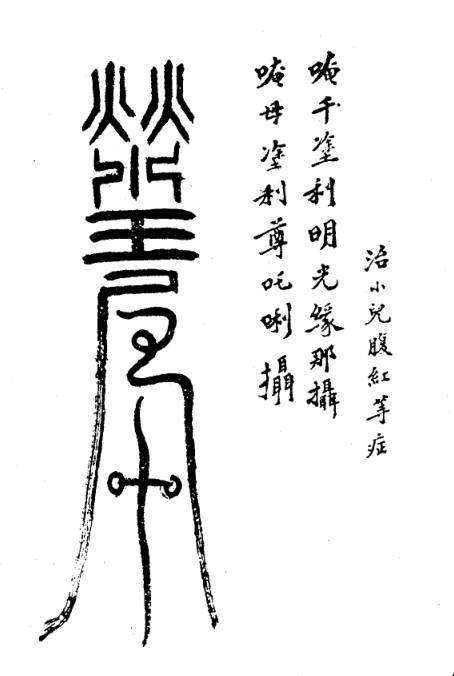 治小兒腹紅等症
唵千塗利明光緣那攝
唵母塗利尊吒唎攝